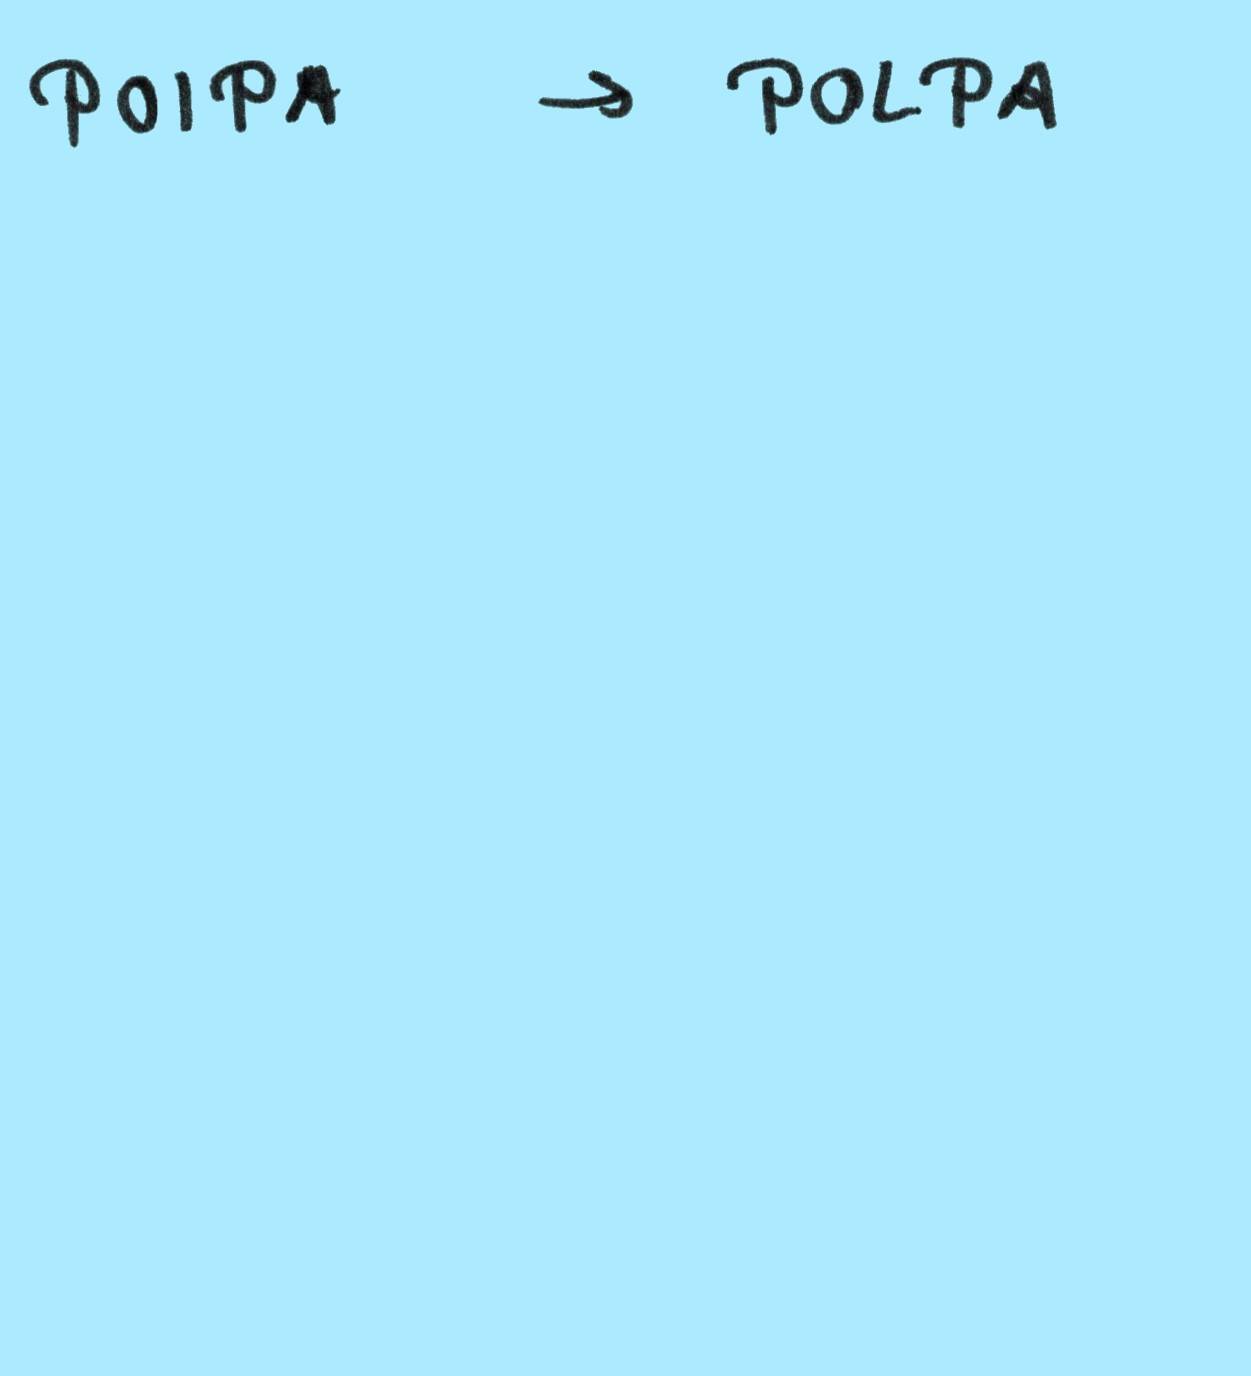 POIPA → POLPA